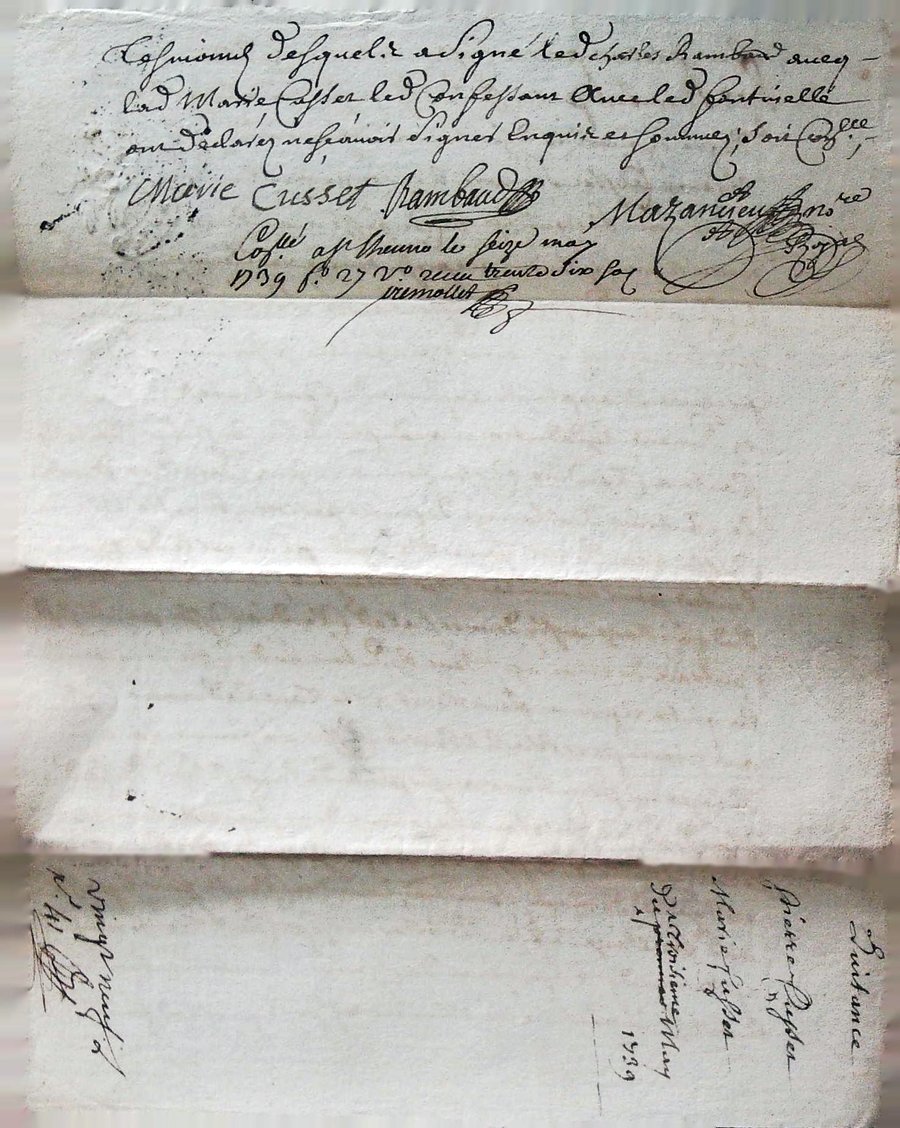 tesmoins desquels a signé led charles Rambaud avec
lad Marie Cusset led Confessant avec led fontinelle
ont declarez ne scavoir signer Enquis et sommez, soit Con.llé
Marie Cusset Rambaud Mazancieu no.re
Royal
Con.llé a st le seize may
1739 f.o 27 v.o receu trente six
tremollet
Quitance
Pierre Cusset
Marie Cusset
Du troisieme May
1739
vingt neuf
n.o 41